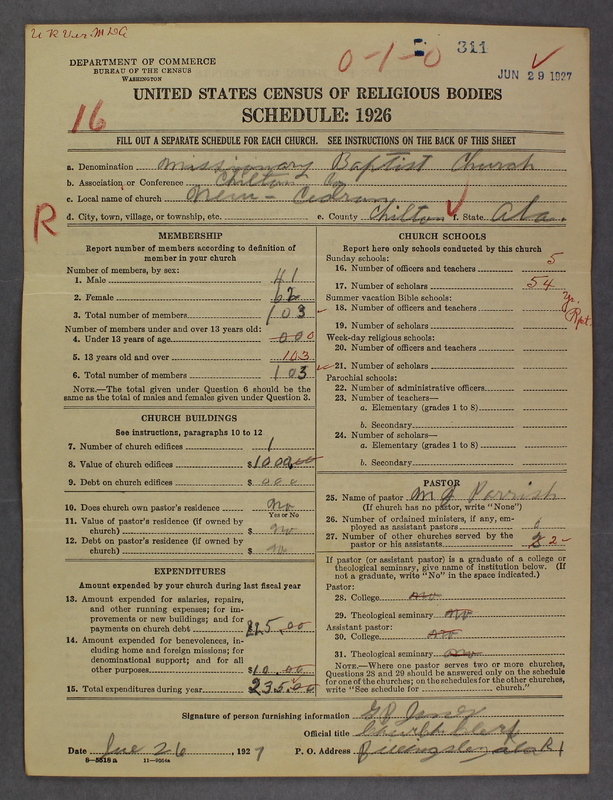 0-1-0
311
DEPARTMENT OF COMMERCE
BUREAU OF THE CENSUS
WASHINGTON
JUN 29 1927
UNITED STATES CENSUS OF RELIGIOUS BODIES
16
SCHEDULE: 1926
FILL OUT A SEPARATE SCHEDULE FOR EACH CHURCH. SEE INSTRUCTIONS ON THE BACK OF THIS SHEET
a. Denomination Missionary Baptist Church
b. Association or Conference Chilton Co
c. Local name of church New-
R
d. City, town, village, or township, etc. e. County Chilton f. State Ala.
MEMBERSHIP
Report number of members according to definition of
member in your church
Number of members, by sex:
1. Male 41
2. Female 62
3. Total number of members 103
Number of members under and over 13 years old:
4. Under 13 years of age 000
5. 13 years old and over 103
6. Total number of members 103
NOTE.—The total given under Question 6 should be the
same as the total of males and females given under Question 3.
CHURCH BUILDINGS
See instructions, paragraphs 10 to 12
7. Number of church edifices 1
8. Value of church edifices $1000.00
9. Debt on church edifices $000
10. Does church own pastor's residence? No
Yes or No
11. Value of pastor's residence (if owned by
church) $ No
12. Debt on pastor's residence (if owned by
church) $ No
EXPENDITURES
Amount expended by your church during last fiscal year
13. Amount expended for salaries, repairs,
and other running expenses; for im-
provements or new buildings; and for
payments on church debt 225.00
14. Amount expended for benevolences, in-
cluding home and foreign missions; for
denominational support; and for all
other purposes $10.00
15. Total expenditures during year 235.00
CHURCH SCHOOLS
Report here only schools conducted by this church
Sunday schools:
16. Number of officers and teachers 5
17. Number of scholars 54
Summer vacation Bible schools:
18. Number of officers and teachers
Yr. Rpt.
19. Number of scholars
Week-day religious schools:
20. Number of officers and teachers
21. Number of scholars
Parochial schools:
22. Number of administrative officers
23. Number of teachers—
a. Elementary (grades 1 to 8)
b. Secondary
24. Number of scholars—
a. Elementary (grades 1 to 8)
b. Secondary
PASTOR
25. Name of pastor M J Parrish
(If church has no pastor, write "None")
26. Number of ordained ministers, if any, em-
ployed as assistant pastors 0
27. Number of other churches served by the
pastor or his assistants 3 2
If pastor (or assistant pastor) is a graduate of a college or
theological seminary, give name of institution below. (If
not a graduate, write "No" in the space indicated.)
Pastor:
28. College No
29. Theological seminary No
Assistant pastor:
30. College No
31. Theological seminary No
NOTE.—Where one pastor serves two or more churches,
Questions 28 and 29 should be answered only on the schedule
for one of the churches; on the schedules for the other churches,
write "See schedule for church."
Signature of person furnishing information
Official title Church Clerk
Date 26, 1927 P. O. Address Ala R 1
8-5518 a 11-9064a